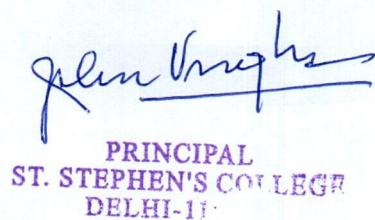 John Varghese
PRINCIPAL
ST. STEPHEN'S COLLEGE
DELHI-11